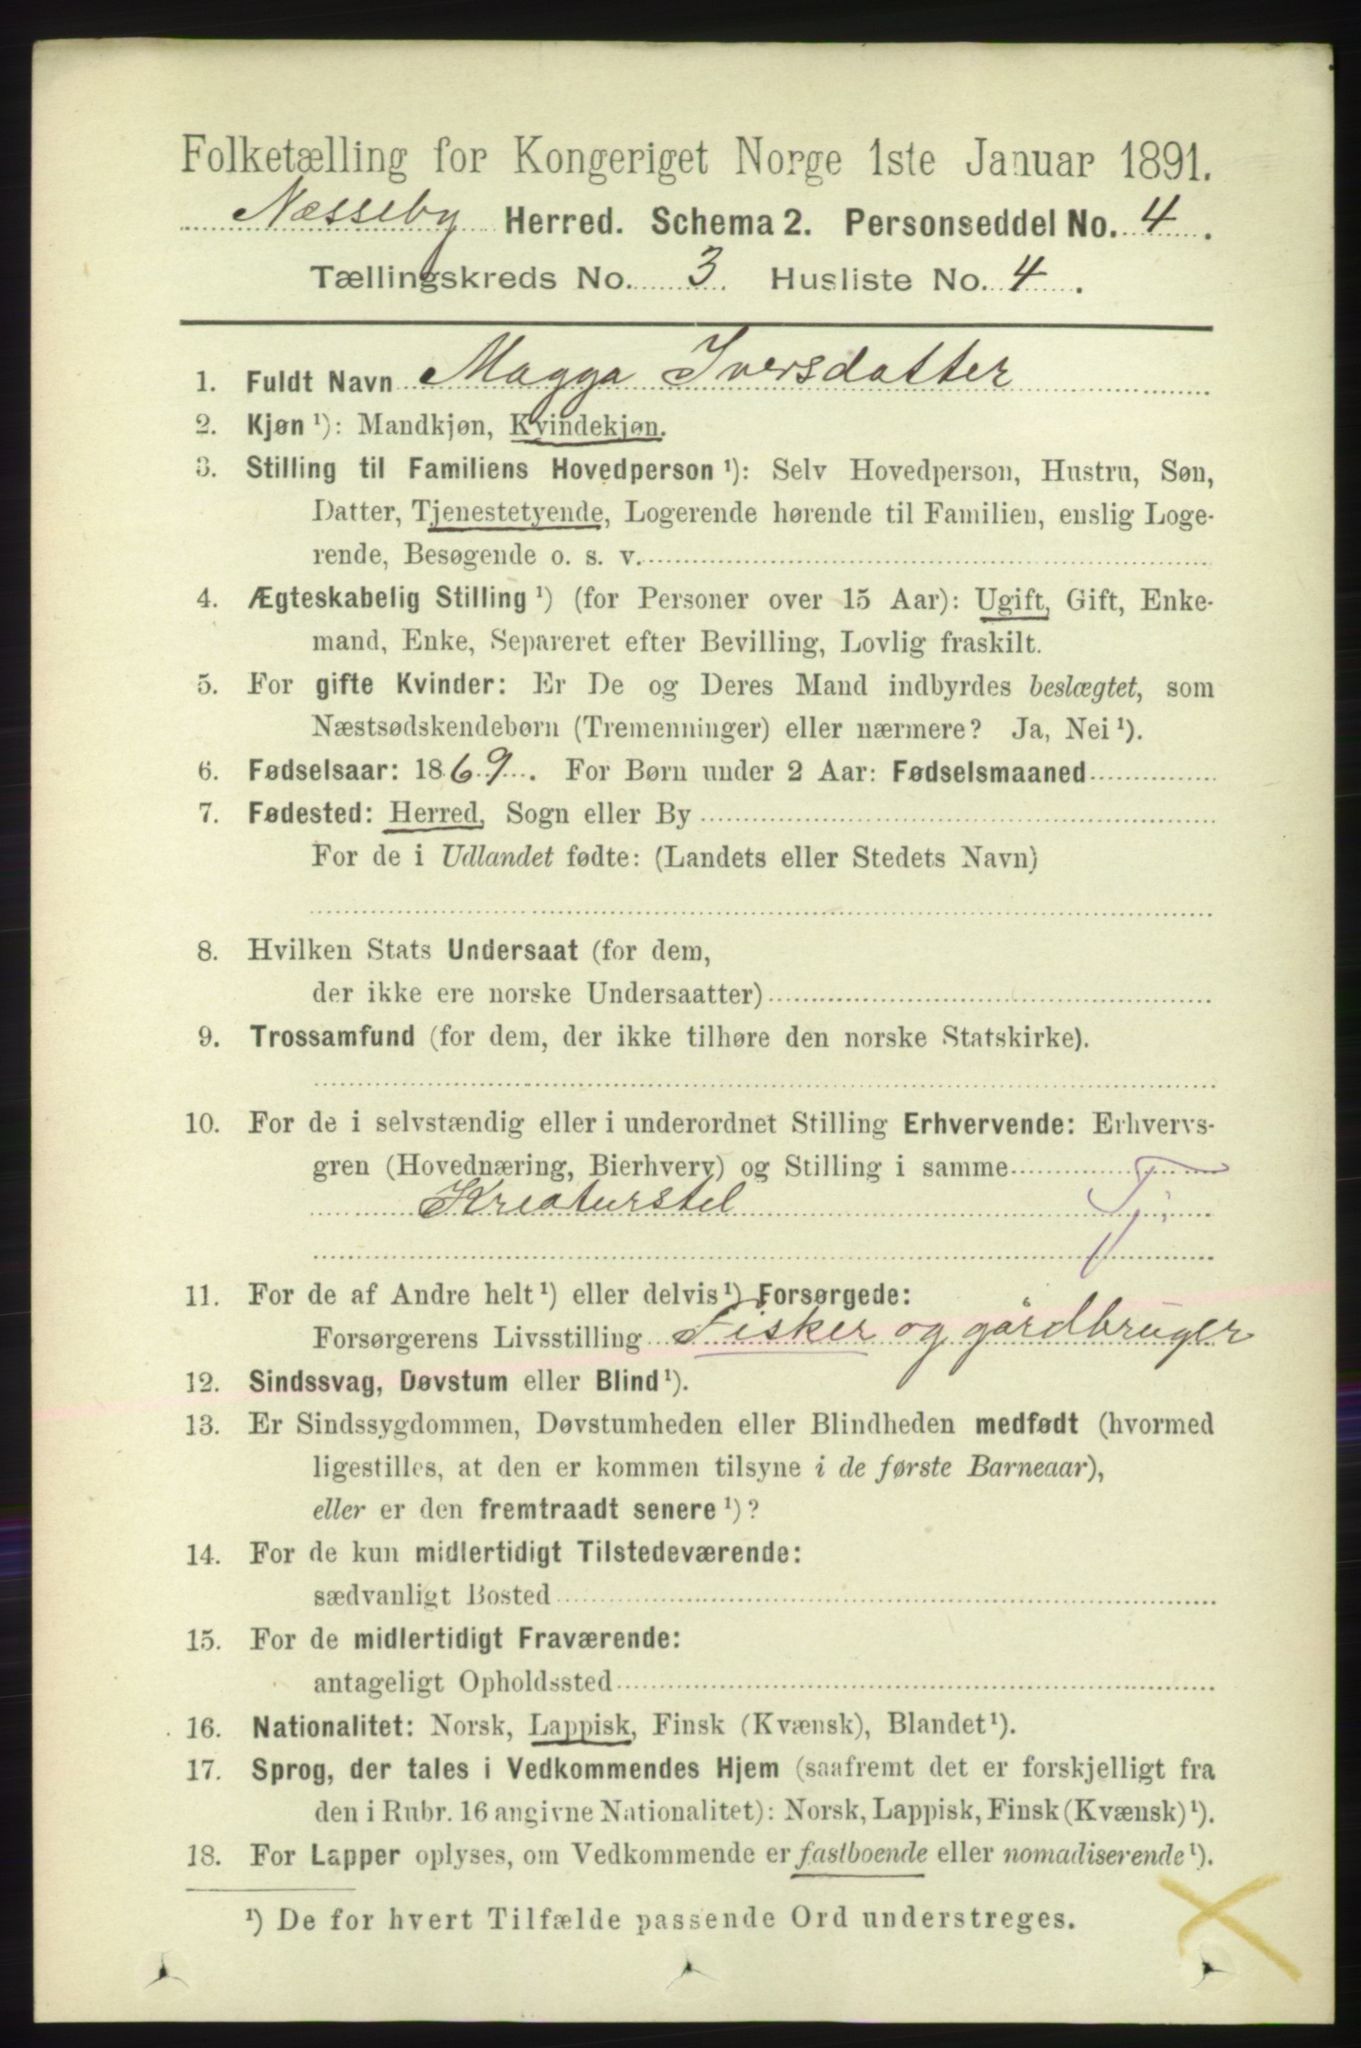 Folketælling for Kongeriget Norge 1ste Januar 1891.
Næsseby Herred. Schema 2. Personseddel No. 4.
Tællingskreds No. 3. Husliste No. 4.
1. Fuldt Navn Magga Iversdatter
2. Kjøn ¹): Mandkjøn, Kvindekjøn.
3. Stilling til Familiens Hovedperson ¹): Selv Hovedperson, Hustru, Søn,
Datter, Tjenestetyende, Logerende hørende til Familien, enslig Loge-
rende, Besøgende o. s. v.
4. Ægteskabelig Stilling ¹) (for Personer over 15 Aar): Ugift, Gift, Enke-
mand, Enke, Separeret efter Bevilling, Lovlig fraskilt.
5. For gifte Kvinder: Er De og Deres Mand indbyrdes beslægtet, som
Næstsødskendebørn (Tremenninger) eller nærmere? Ja, Nei ¹).
6. Fødselsaar: 1869. For Børn under 2 Aar: Fødselsmaaned
7. Fødested: Herred, Sogn eller By
For de i Udlandet fødte: (Landets eller Stedets Navn)
8. Hvilken Stats Undersaat (for dem,
der ikke ere norske Undersaatter)
9. Trossamfund (for dem, der ikke tilhøre den norske Statskirke).
10. For de i selvstændig eller i underordnet Stilling Erhvervende: Erhvervs-
gren (Hovednæring, Bierhverv) og Stilling i samme
Kreaturstel Tj.
11. For de af Andre helt ¹) eller delvis ¹) Forsørgede:
Forsørgerens Livsstilling Fisker og gårdbruger
12. Sindssvag, Døvstum eller Blind ¹).
13. Er Sindssygdommen, Døvstumheden eller Blindheden medfødt (hvormed
ligestilles, at den er kommen tilsyne i de første Barneaar),
eller er den fremtraadt senere ¹)?
14. For de kun midlertidigt Tilstedeværende:
sædvanligt Bosted
15. For de midlertidigt Fraværende:
antageligt Opholdssted
16. Nationalitet: Norsk, Lappisk, Finsk (Kvænsk), Blandet ¹).
17. Sprog, der tales i Vedkommendes Hjem (saafremt det er forskjelligt fra
den i Rubr. 16 angivne Nationalitet): Norsk, Lappisk, Finsk (Kvænsk) ¹).
18. For Lapper oplyses, om Vedkommende er fastboende eller nomadiserende ¹).
¹) De for hvert Tilfælde passende Ord understreges.